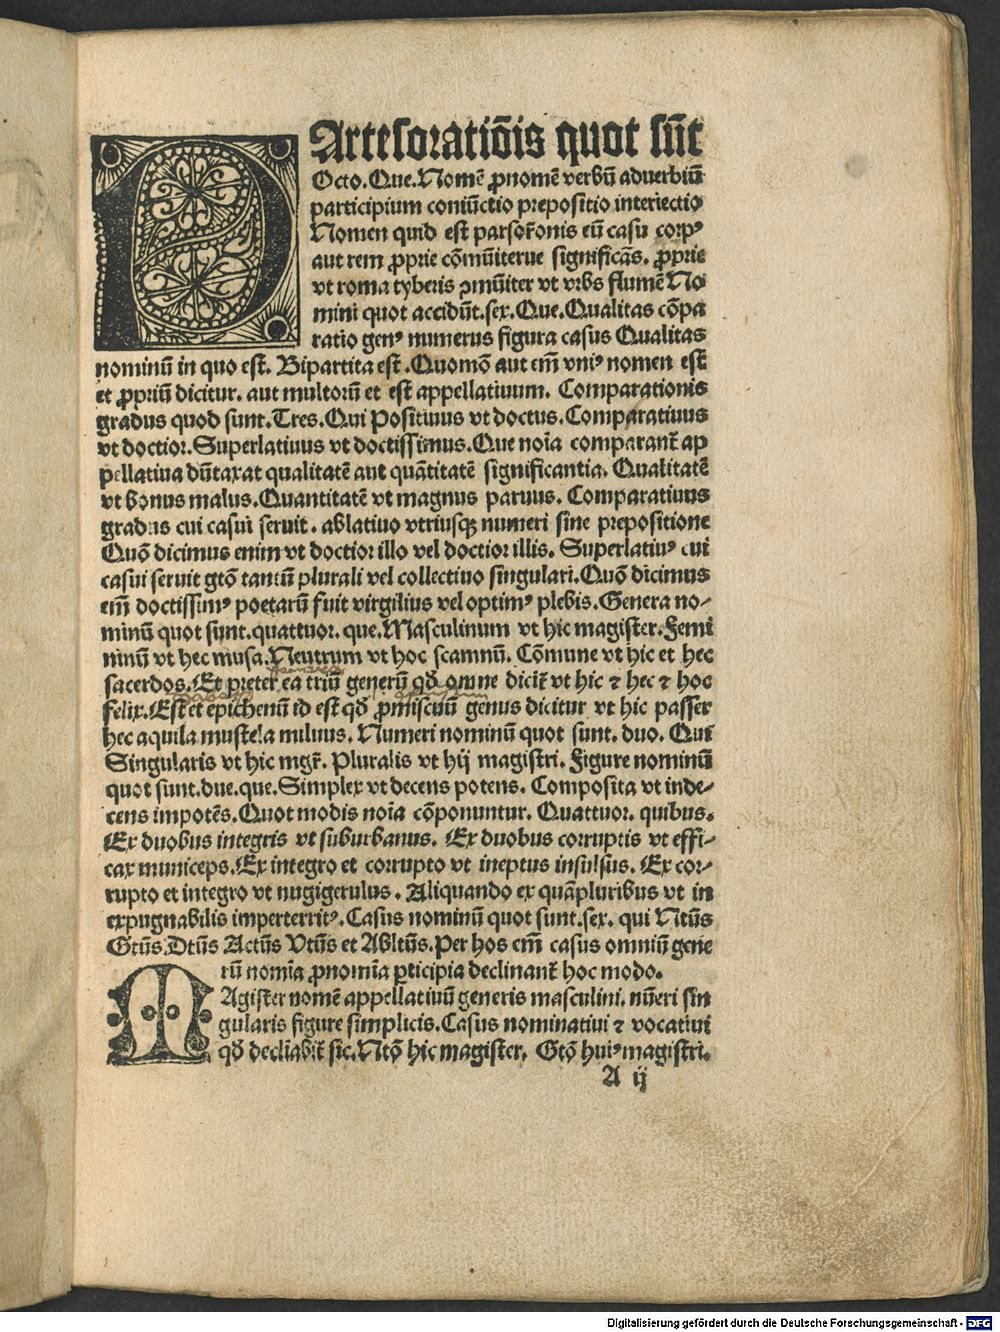 PArtes oratiōis quot sūt
Octo. Que. Nomē ꝓnomē verbū aduerbiū
participium coniūctio prepositio interiectio
Nomen quid est pars or̄onis cū casu corpꝰ
aut rem ꝓprie cōmūiterue significās. ꝓprie
vt roma tyberis ꝯmūiter vt vrbs flumē No
mini quot accidūt. sex. Que. Qualitas cōpa
ratio genꝰ numerus figura casus Qualitas
nominū in quo est. Bipartita est. Quomō aut em̄ vniꝰ nomen est
et ꝓpriū dicitur. aut multorū et est appellatiuum. Comparationis
gradus quod sunt. Tres. Qui Positiuus vt doctus. Comparatiuus
vt doctior. Superlatiuus vt doctissimus. Que noīa comparant̄ ap
pellatiua dūtaxat qualitatē aut quātitatē significantia. Qualitatē
vt bonus malus. Quantitatē vt magnus paruus. Comparatiuus
gradus cui casui seruit. ablatiuo vtriusqꝫ numeri sine prepositione
Quō dicimus enim vt doctior illo vel doctior illis. Superlatiuꝰ cui
casui seruit gtō tantū plurali vel collectiuo singulari. Quō dicimus
em̄ doctissimꝰ poetarū fuit virgilius vel optimꝰ plebis. Genera no-
minū quot sunt. quattuor. que. Masculinum vt hic magister. Femi
ninū vt hec musa. Neutrum vt hoc scamnū. Cōmune vt hic et hec
sacerdos. Et preter ea triū generū qd̄ omne dicit̄ vt hic ⁊ hec ⁊ hoc
felix. Est et epichenū id est qd̄ ꝓmiscuū genus dicitur vt hic passer
hec aquila mustela miluus. Numeri nominū quot sunt. duo. Qui
Singularis vt hic mgr̄. Pluralis vt hij magistri. Figure nominū
quot sunt. due. que. Simplex vt decens potens. Composita vt inde-
cens impotēs. Quot modis noīa cōponuntur. Quattuor. quibus.
Ex duobus integris vt suburbanus. Ex duobus corruptis vt effi-
cax municeps. Ex integro et corrupto vt ineptus insulsus. Ex cor-
rupto et integro vt nugigerulus. Aliquando ex quāpluribus vt in
expugnabilis imperterritꝰ. Casus nominū quot sunt. sex. qui Ntūs
Gtūs. Dtūs Actūs Vtūs et Abltūs. Per hos em̄ casus omniū gene
rū nomīa ꝓnomīa ꝑticipia declinant̄ hoc modo.
MAgister nomē appellatiuū generis masculini. nūeri sin
gularis figure simplicis. Casus nominatiui ⁊ vocatiui
qd̄ decliabit̄ sic. Ntō hic magister. Gtō huiꝰ magistri.
A ij
Digitalisierung gefördert durch die Deutsche Forschungsgemeinschaft - DFG